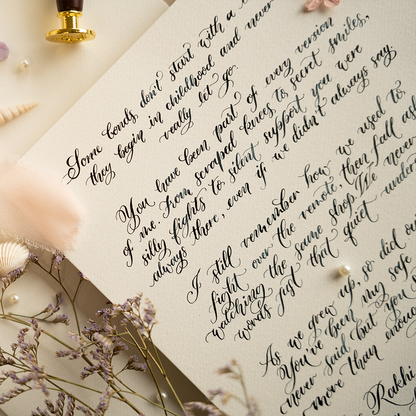 Some bonds don't start with a
they begin in childhood and never
really let go.
You have been part of every version
of me, from scraped knees to secret smiles,
silly fights to silent support you were
always there, even if we didn't always say
I still remember how we used to
fight over the remote, then fall
watching the same shop. I've never
words just that quiet
As we grew up, so did
You've been my safe
never said but you
more than
Rakhi